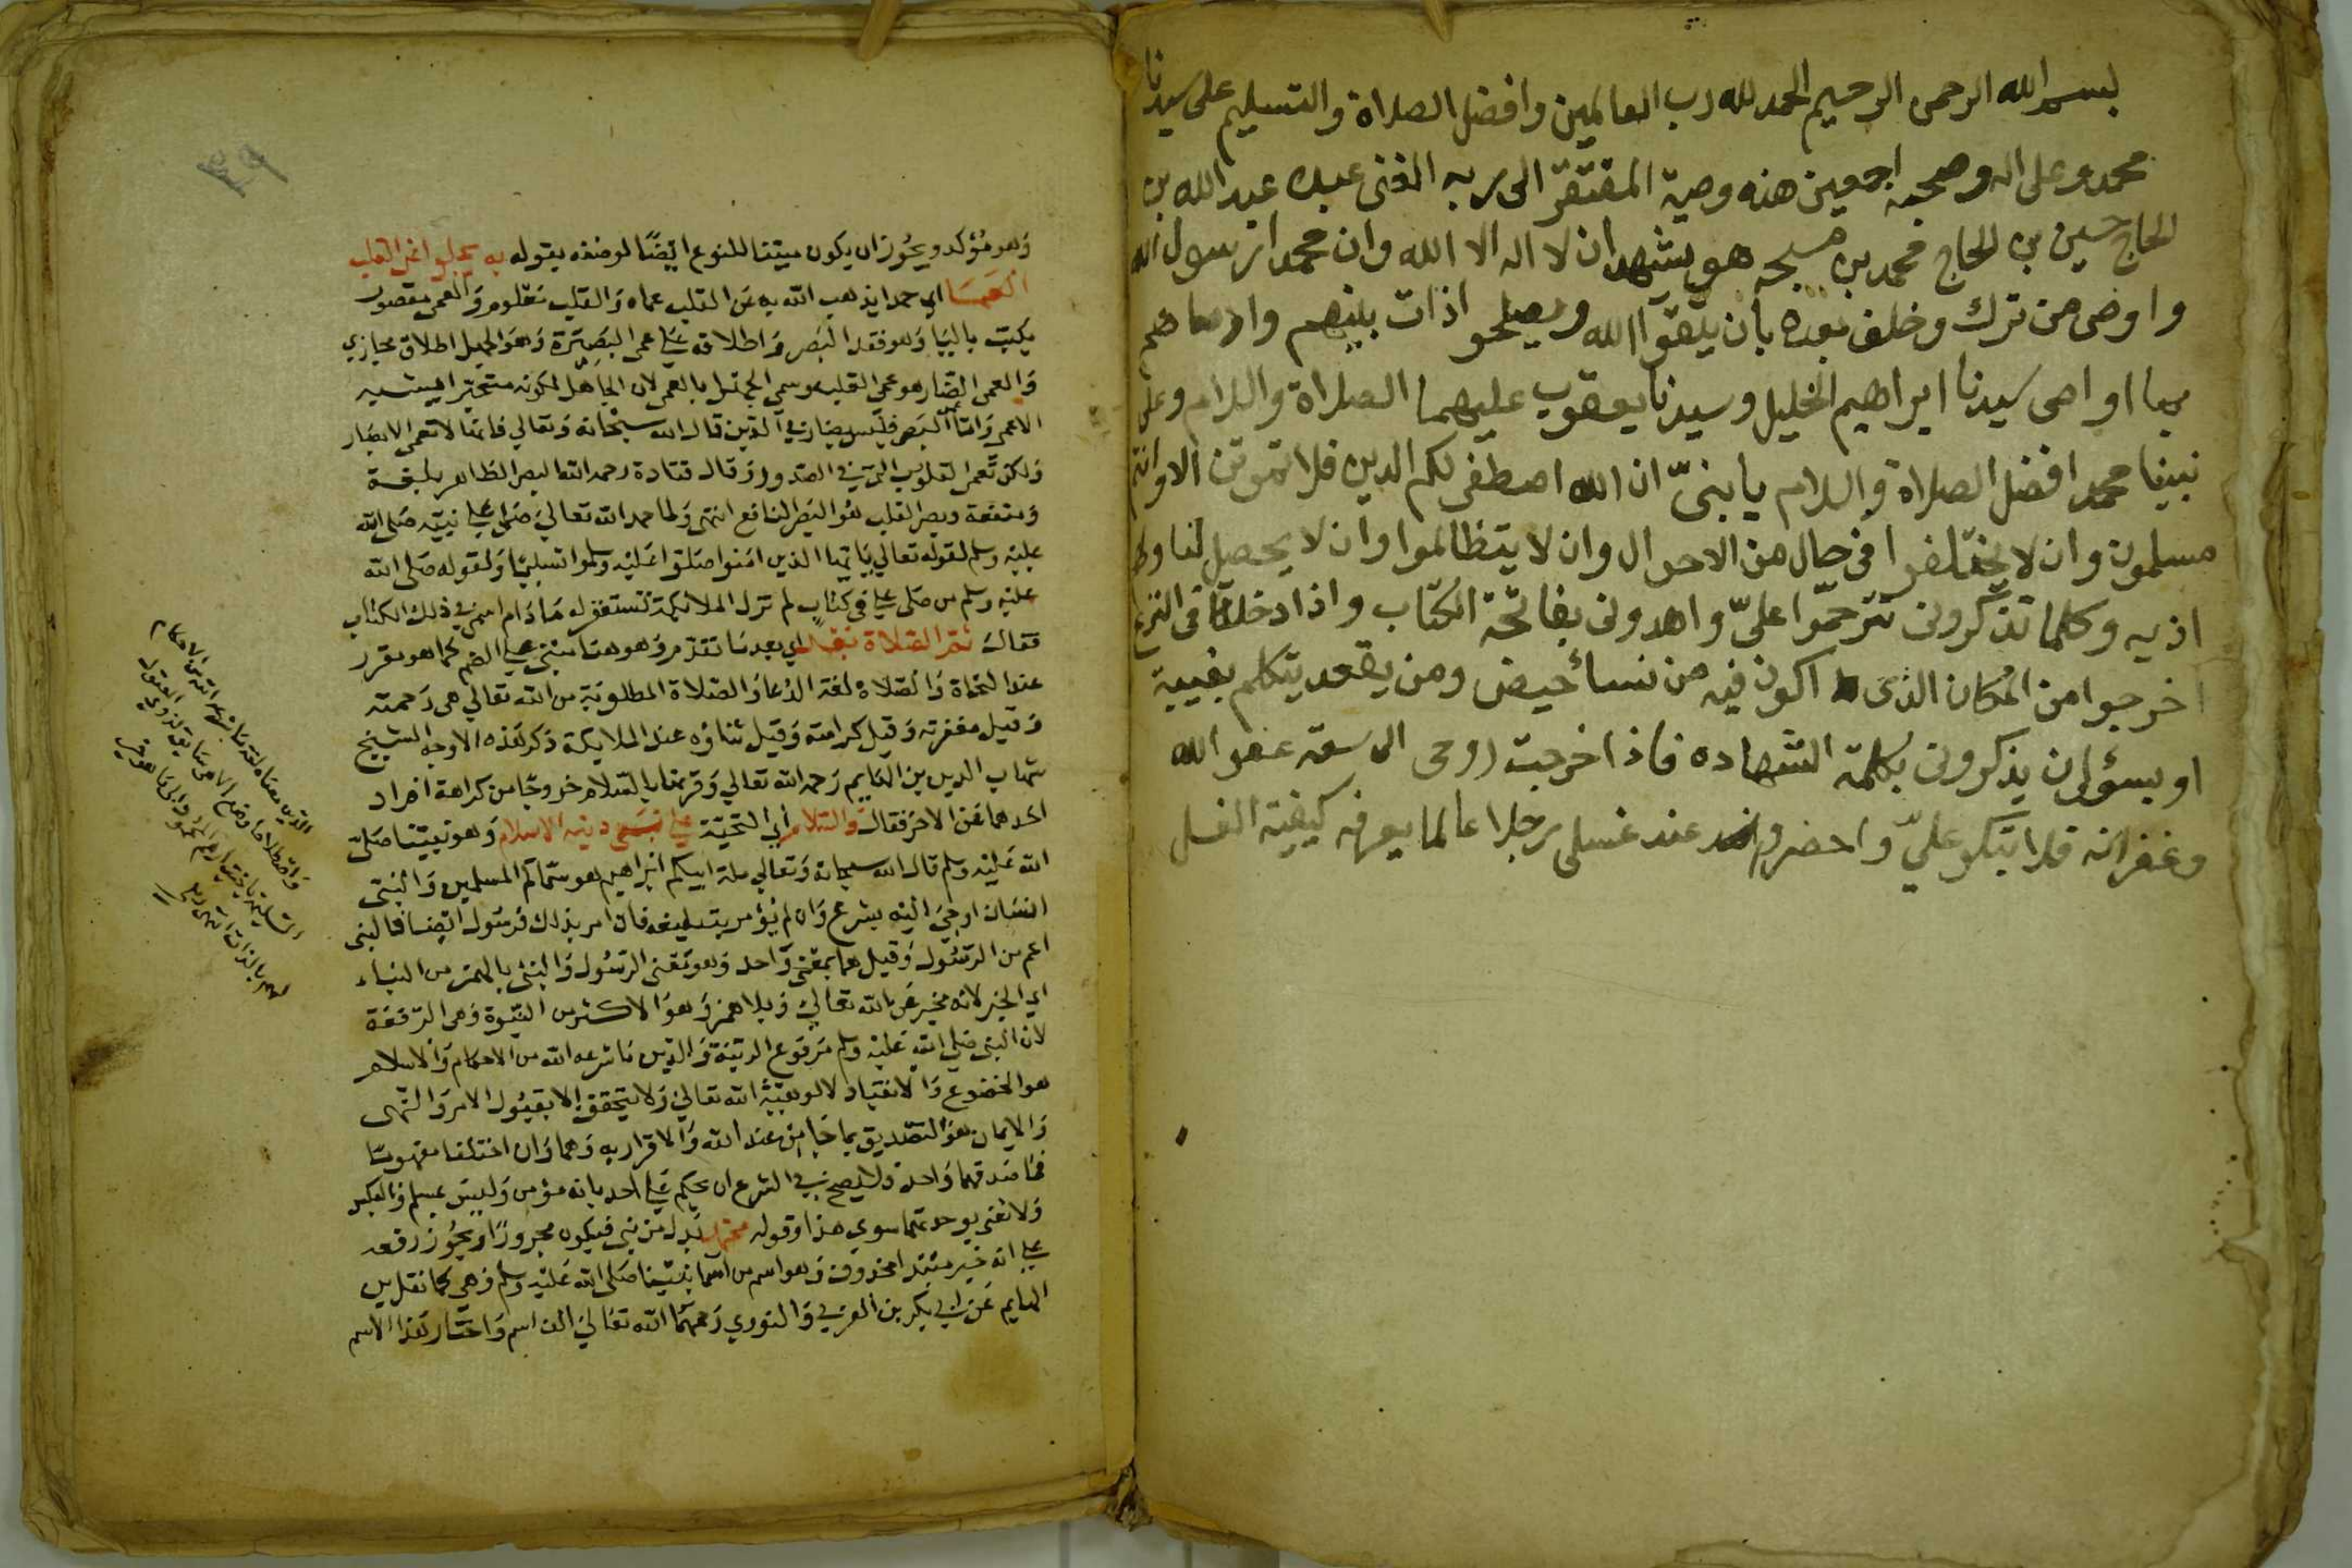 بسم الله الرحمن الرحيم الحمد لله رب العالمين وافضل الصلاة والتسليم على سيدنا
محمد وعلى اله وصحبه اجمعين هذه وصية المفتقر الى ربه الغنى عبده عبد الله بن
الحاج حسين بن الحاج محمد بن هو يشهد ان لا اله الا الله وان محمدا رسول الله
واوصى من ترك وخلف بعده بأن يتقوا الله ويصلحو اذات بينهم واوصاهم
بما اوصى سيدنا ابراهيم الخليل وسيدنا يعقوب عليهما الصلاة والسلام وعلى
نبينا محمد افضل الصلاة والسلام يا بنىّ ان الله اصطفى لكم الدين فلا تموتن الا وانتم
مسلمون وان لا يختلفوا فى حال من الاحوال وان لا يتظالموا وان لا يحصل لنا ولهم
اذيه وكلما تذكرونى تترحمّوا علىّ واهدونى بفاتحة الكتاب واذا دخلت فى النزع
اخرجوا من المكان الذى اكون فيه من نسأ حيض ومن يقعد يتكلم بغيبة
او بسؤال ان يذكرونى بكلمة الشهاده فاذا خرجت روحى الى سعة عفو الله
وغفرانه فلا تبكو علىّ واحضرو عند غسلى رجلا عالما يعرف كيفية الغسل
وهو مؤكد ويجوز ان يكون مبينا للنوع ايضا لوصفه بقوله به يجلو عن القلب
العمسا اي حمدا يذهب الله به عن القلب عماه والقلب معلوم والعمى مقصور
يكتب باليا وهو فقد البصر واطلاقه على عمى البصيرة وهو الجهل اطلاق مجازي
والعمى الضار هو عمى القلب وسمي الجهل بالعمى لان الجاهل لكونه متحيرا يشبه
الاعمى واما عمى البصر فليس بضار في الدين قال الله سبحانه وتعالي فانها لا تعمى الابصار
ولكن تعمى القلوب التي في الصدور وقال قتادة رحمه الله البصر الظاهر بلغة
ومنفعة وبصر القلب هو البصر النافع انتهى ولما حمد الله تعالي صلى علي نبيه صلى الله
عليه وسلم لقوله تعالي يا ايها الذين امنوا صلوا عليه وسلموا تسليما ولقوله صلى الله
عليه وسلم من صلى علي في كتاب لم تزل الملائكة تستغفر له ما دام اسمي في ذلك الكتاب
فقال ثم الصلاة بعد اي بعد ما تقدم وهو هنا مبني على الضم كما هو مقرر
عند النحاة والصلاة لغة الدعا والصلاة المطلوبة من الله تعالي هي رحمته
وقيل مغفرته وقيل كرامته وقيل ثناؤه عند الملايكة ذكر هذه الاوجه الشيخ
شهاب الدين بن الهايم رحمه الله تعالي وقرنها بالسلام خروجا من كراهة افراد
احدهما عن الاخر فقال والسلام اي التحية على نبي دينه الاسلام وهو نبينا صلى
الله عليه وسلم قال الله سبحانه وتعالي ملة ابيكم ابراهيم هو سماكم المسلمين والنبي
انسان اوحي اليه بشرع وان لم يؤمر بتبليغه فان امر بذلك فرسول ايضا فالنبي
اعم من الرسول وقيل هما بمعنى واحد وهو معنى الرسول والنبئ بالهمز من النباء
اي الخبر لانه مخبر عن الله تعالي وبلا همز وهو الاكثر من النبوة وهي الرفعة
لان النبي صلي الله عليه وسلم مرفوع الرتبة والدين ما شرعه الله من الاحكام والاسلام
هو الخضوع والانقياد لالوهية الله تعالي ولا يتحقق الا بقبول الامر والنهى
والايمان هو التصديق بما جا من عند الله والاقرار به وهما وان اختلفا مفهوما
فما صدقهما واحد ولا يصح في الشرع ان يحكم علي احد بانه مؤمن وليس بمسلم وبالعكس
ولا نعني بوحدتهما سوي هذا وقوله محمد بدل من نبي فيكون مجرورا ويجوز رفعه
علي انه خبر مبتدا محذوف وهو اسم من اسما نبينا صلى الله عليه وسلم وهي كما نقل بن
الهايم عن ابي بكر بن العربي والنووي رحمهما الله تعالي الف اسم واختار هذا الاسم